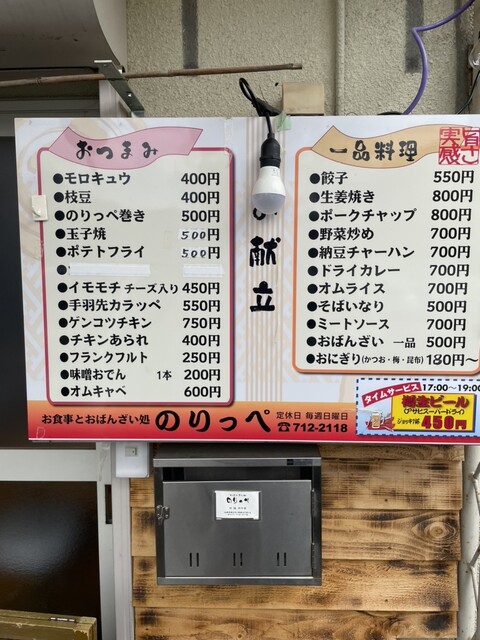 おつまみ
●モロキュウ 400円
●枝豆 400円
●のりっぺ巻き 500円
●玉子焼 500円
●ポテトフライ 500円
●イモモチ チーズ入り 450円
●手羽先カラッペ 550円
●ゲンコツチキン 750円
●チキンあられ 400円
●フランクフルト 250円
●味噌おでん 1本 200円
●オムキャベ 600円
献立
一品料理
旨さ実感
●餃子 550円
●生姜焼き 800円
●ポークチャップ 800円
●野菜炒め 700円
●納豆チャーハン 700円
●ドライカレー 700円
●オムライス 700円
●そばいなり 500円
●ミートソース 700円
●おばんざい 一品 500円
●おにぎり(かつお・梅・昆布) 180円〜
タイムサービス 17:00〜19:00
樽生ビール
(アサヒスーパードライ)
ジョッキ1杯 450円
お食事とおばんざい処 のりっぺ 定休日 毎週日曜日
☎712-2118
のりっぺ